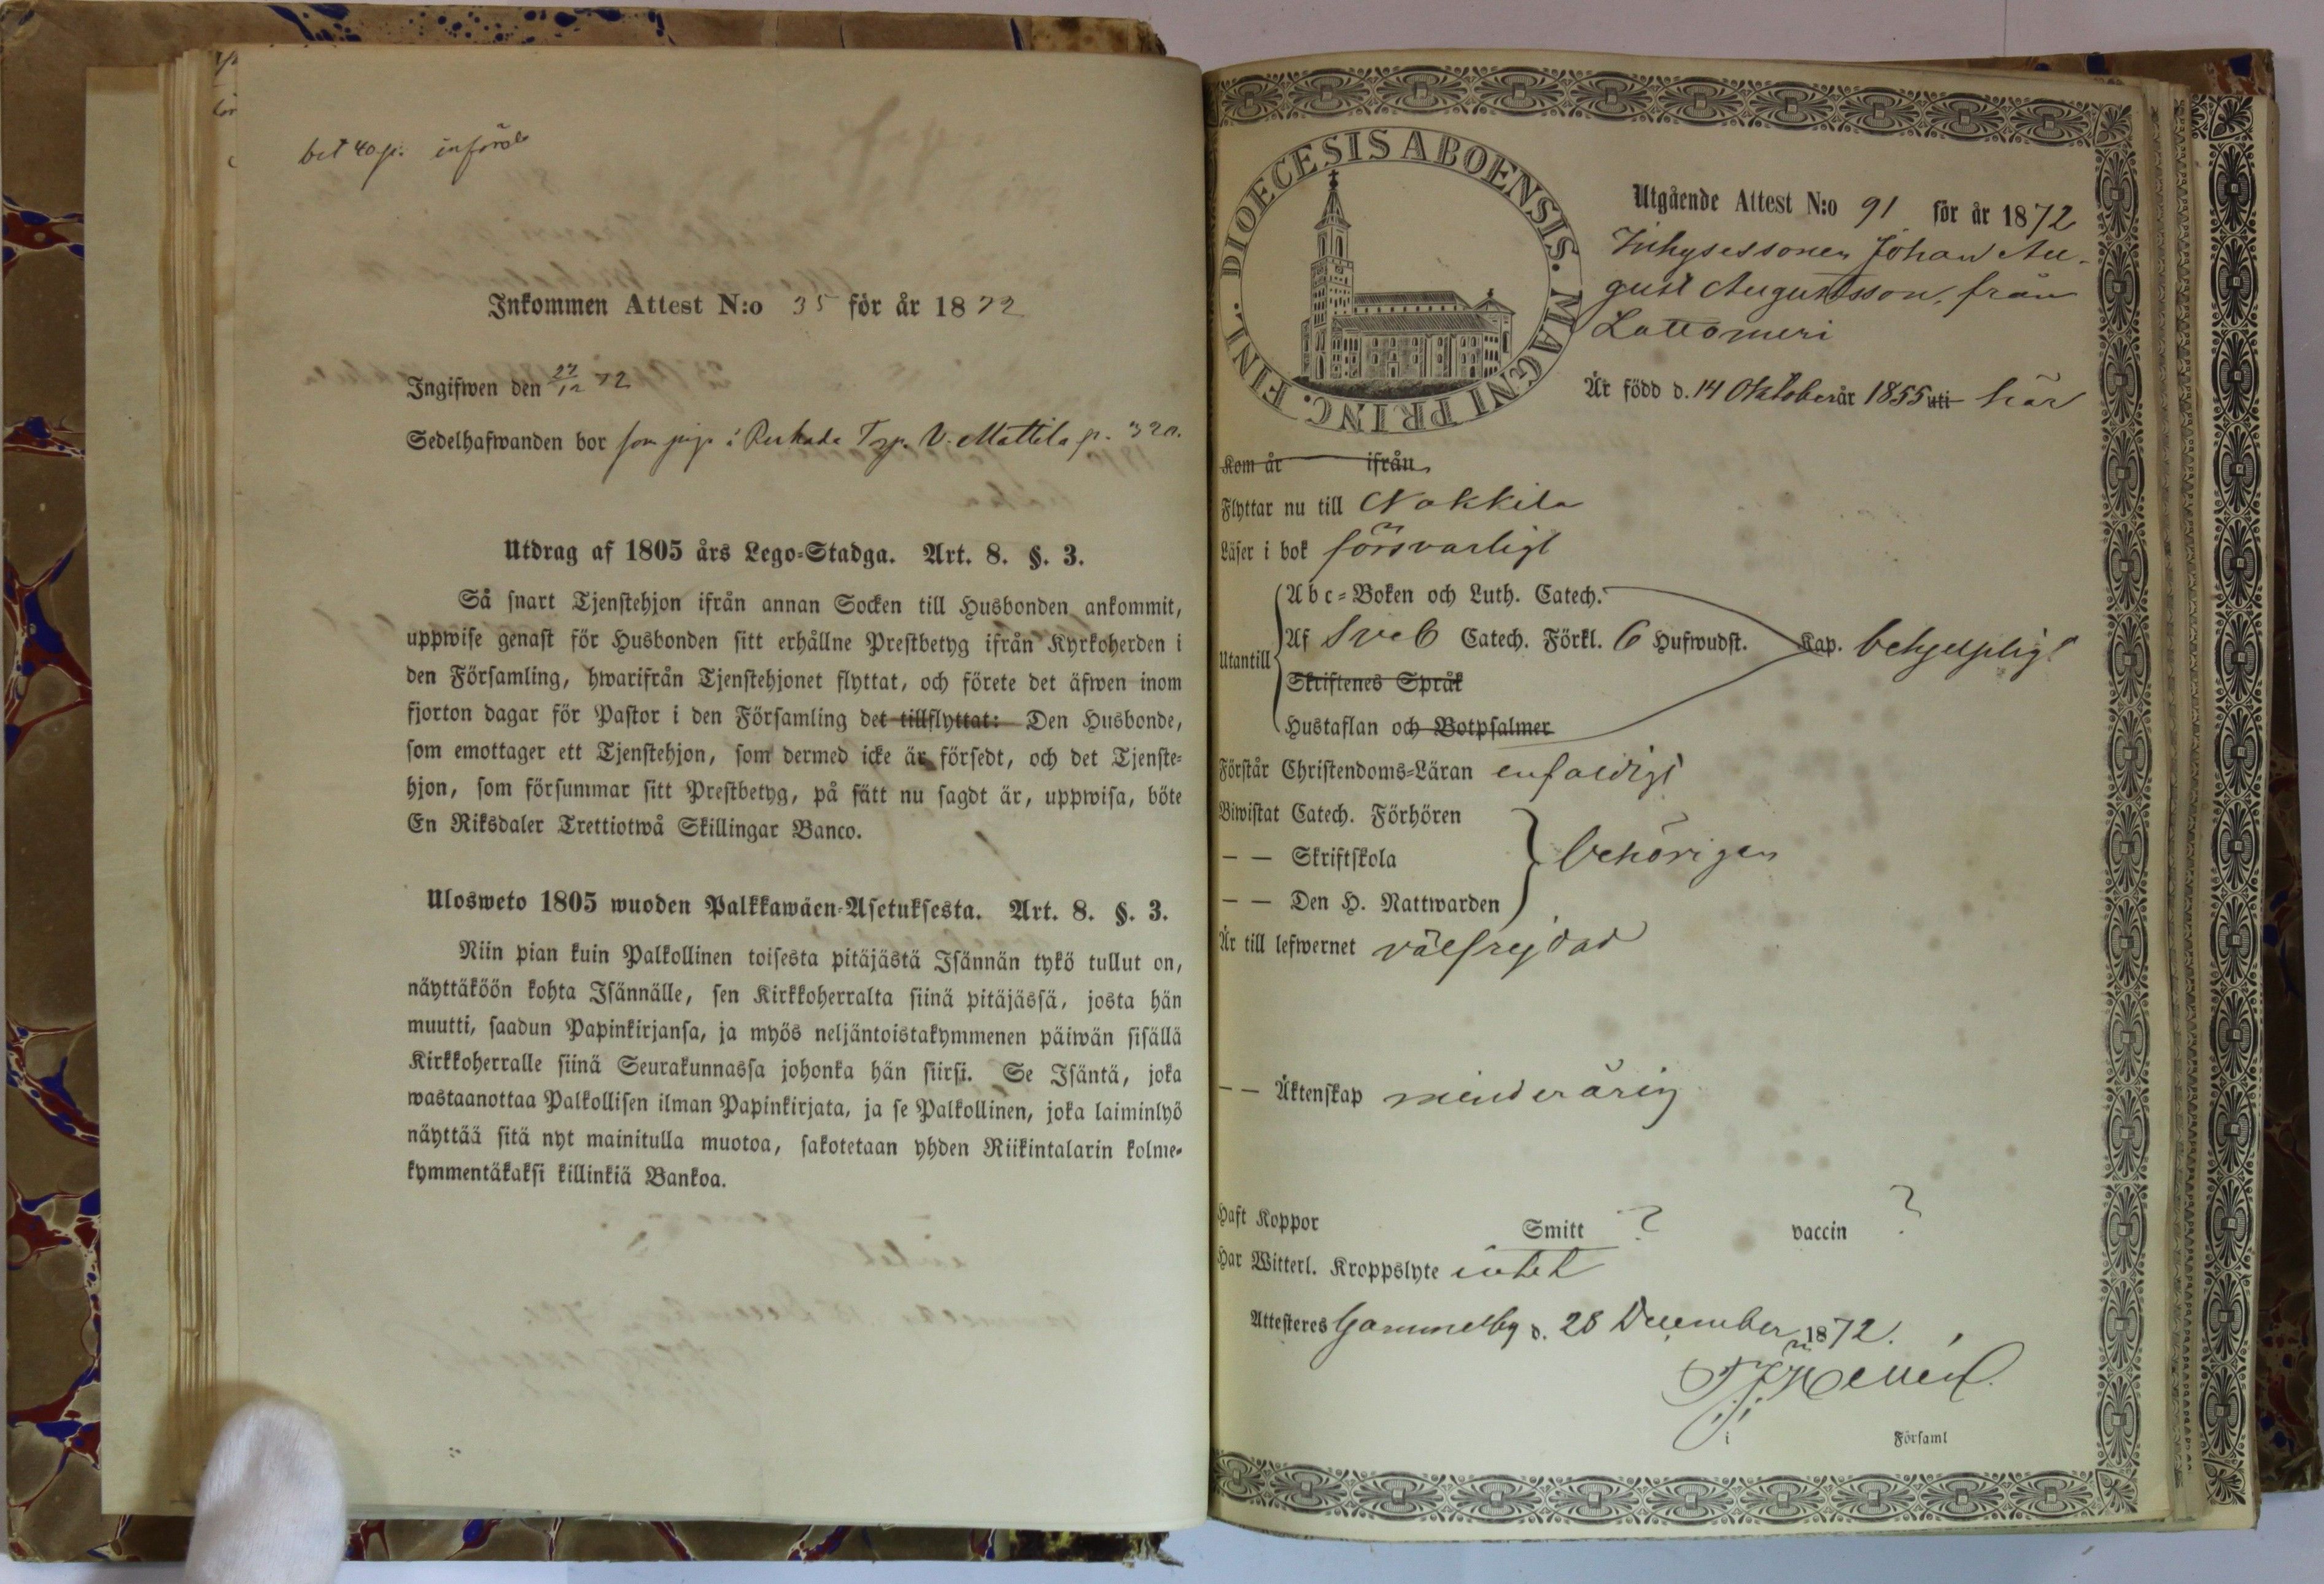 bet 40 p. införd
Inkommen Attest N:o 35 för år 1872
Ingifwen den 27/12 72
Sedelhafwanden bor som piga i Ruskada Trp. V. Mattila p. 320.
Utdrag af 1805 års Lego-Stadga. Art. 8. §. 3.
Så snart Tjenstehjon ifrån annan Socken till Husbonden ankommit,
uppwise genast för Husbonden sitt erhållne Prestbetyg ifrån Kyrkoherden i
den Församling, hwarifrån Tjenstehjonet flyttat, och förete det äfwen inom
fjorton dagar för Pastor i den Församling det tillflyttat: Den Husbonde,
som emottager ett Tjenstehjon, som dermed icke är försedt, och det Tjenste-
hjon, som försummar sitt Prestbetyg, på sätt nu sagdt är, uppwisa, böte
En Riksdaler Trettiotwå Skillingar Banco.
Ulosweto 1805 wuoden Palkkawäen-Asetuksesta. Art. 8. §. 3.
Niin pian kuin Palkollinen toisesta pitäjästä Isännän tykö tullut on,
näyttäköön kohta Isännälle, sen Kirkkoherralta siinä pitäjässä, josta hän
muutti, saadun Papinkirjansa, ja myös neljäntoistakymmenen päiwän sisällä
Kirkkoherralle siinä Seurakunnassa johonka hän siirsi. Se Isäntä, joka
wastaanottaa Palkollisen ilman Papinkirjata, ja se Palkollinen, joka laiminlyö
näyttää sitä nyt mainitulla muotoa, sakotetaan yhden Riikintalarin kolme-
kymmentäkaksi killinkiä Bankoa.
DIOECESIS ABOENSIS. MAGNI PRINC. FINL.
Utgående Attest N:o 91 för år 1872
Inhysessonen Johan Au-
gust Augustsson, från
Lattomeri
Är född d. 14 Oktober år 1855 uti här
Kom år ifrån
Flyttar nu till Nakkila
Läser i bok försvarligt
Abc-Boken och Luth. Catech.
Utantill Af Sveb Catech. Förkl. 6 Hufwudst. Kap. behjelpligt
Skriftenes Språk
Hustaflan och Botpsalmer
Förstår Christendoms-Läran enfaldigt
Biwistat Catech. Förhören
— — Skriftskola behörigen
— — Den H. Nattwarden
Är till lefwernet välfrejdad
— — Äktenskap minderårig
Haft Koppor Smitt ? vaccin ?
Har Witterl. Kroppslyte intet
Attesteres Gammelby d. 28 December 1872.
i Församl